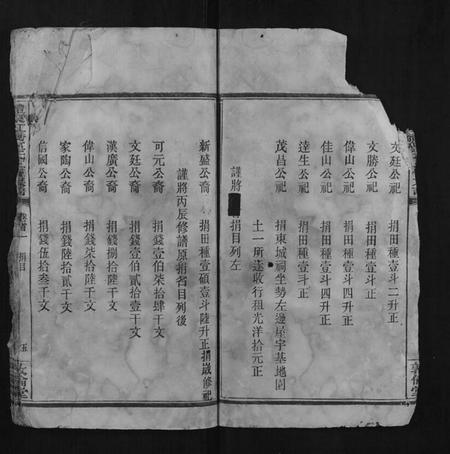 文廷公祀　捐田種壹斗二升正
文勝公祀　捐田種壹斗正
偉山公祀　捐田種壹斗四升正
佳山公祀　捐田種壹斗四升正
達生公祀　捐田種壹斗正
茂昌公祀　捐東城祠坐勢左邊屋宇基地園
土一所遞收行租光洋拾元正
謹將　捐目列左
新盛公裔　捐田種壹碩壹斗陸升正捐歲修祀
謹將丙辰修譜原捐省目列後
可元公裔　捐錢壹伯柒拾肆千文
文廷公裔　捐錢壹伯貳拾壹千文
漢廣公裔　捐錢捌拾陸千文
偉山公裔　捐錢柒拾陸千文
家陶公裔　捐錢陸拾貳千文
信國公裔　捐錢伍拾叁千文
卷首一　捐目　五
敦倫堂